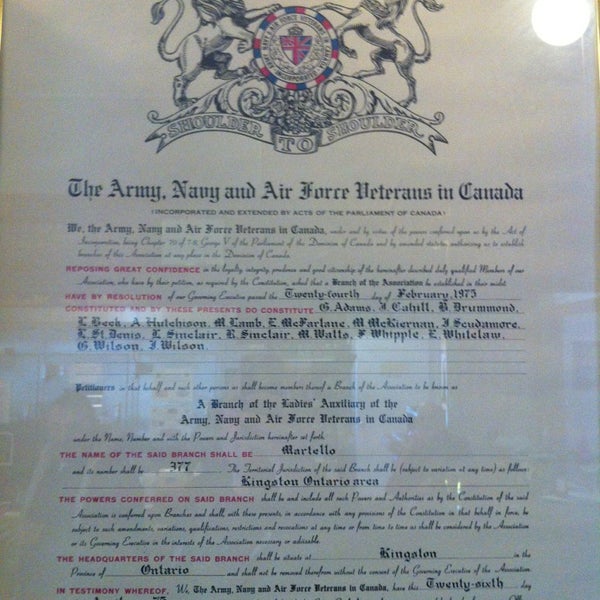 SHOULDER TO SHOULDER
The Army, Navy and Air Force Veterans in Canada
(INCORPORATED AND EXTENDED BY ACTS OF THE PARLIAMENT OF CANADA)
We, the Army, Navy and Air Force Veterans in Canada, under and by virtue of the powers conferred upon us by the Act of
Incorporation, being Chapter 70 of 7-8, George V of the Parliament of the Dominion of Canada and by amended statute, authorizing us to establish
branches of this Association at any place in the Dominion of Canada.
REPOSING GREAT CONFIDENCE in the loyalty, integrity, prudence and good citizenship of the hereinafter described duly qualified Members of our
Association, who have by their petition, as required by the Constitution, asked that a Branch of the Association be established in their midst
HAVE BY RESOLUTION of our Governing Executive passed the Twenty-fourth day of February, 1975
CONSTITUTED AND BY THESE PRESENTS DO CONSTITUTE G. Adams, J. Cahill, B. Drummond,
L. Beck, A. Hutchison, M. Lamb, E. McFarlane, M McKiernan, J Scudamore,
L. St. Denis, L. Sinclair, R. Sinclair, M. Watts, F Whipple, E. Whitelaw,
G. Wilson, J. Wilson
Petitioners in that behalf and such other persons as shall become members thereof a Branch of the Association to be known as
A Branch of the Ladies' Auxiliary of the
Army, Navy and Air Force Veterans in Canada
under the Name, Number and with the Powers and Jurisdiction hereinafter set forth
THE NAME OF THE SAID BRANCH SHALL BE Martello
and its number shall be 377. The Territorial Jurisdiction of the said Branch shall be (subject to variation at any time) as follows:
Kingston Ontario area
THE POWERS CONFERRED ON SAID BRANCH shall be and include all such Powers and Authorities as by the Constitution of the said
Association is conferred upon Branches and shall, with these presents, in accordance with any provisions of the Constitution in that behalf in force, be
subject to such amendments, variations, qualifications, restrictions and revocations at any time or from time to time as shall be considered by the Association
or its Governing Executive in the interests of the Association necessary or advisable.
THE HEADQUARTERS OF THE SAID BRANCH shall be situate at Kingston in the
Province of Ontario and shall not be removed therefrom without the consent of the Governing Executive of the Association.
IN TESTIMONY WHEREOF, We, The Army, Navy and Air Force Veterans in Canada, have this Twenty-sixth day